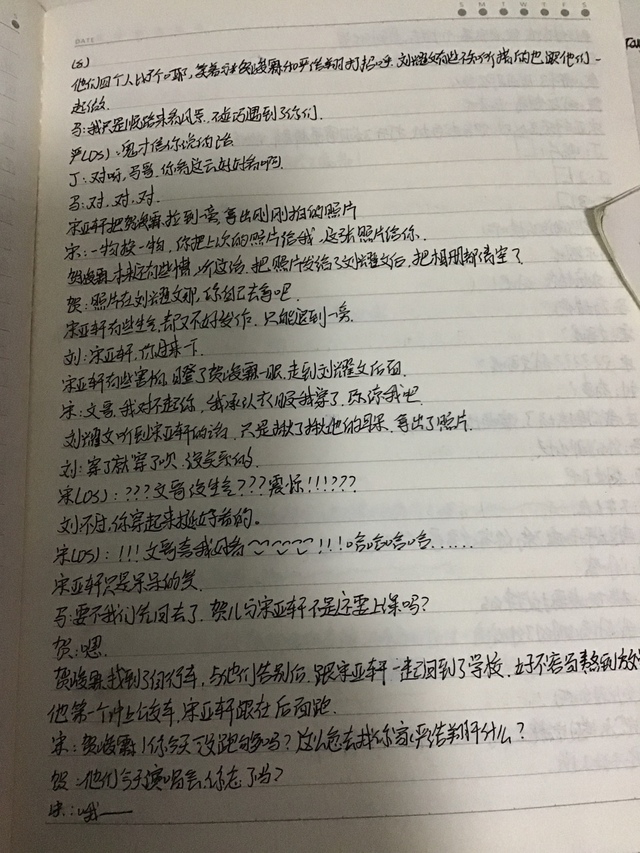 S M T W T F S
DATE
(8)
他们四个人比了个耶,笑着对贺峻霖和严浩翔打招呼.刘耀文有些不知所措的也跟他们一
起做.
马:我只是顺路来看风景,不凑巧遇到了你们.
严(OS):鬼才信你说的话
丁:对呀,马哥,你看这云好好看啊.
马:对.对.对.
宋亚轩把贺峻霖拉到一旁,拿出刚刚拍的照片
宋:一物换一物,你把上次的照片给我,这张照片给你.
贺峻霖本来有些懵,听这话.把照片发给了刘耀文后.把相册都清空了
贺:照片在刘耀文那,你自己去看吧.
宋亚轩有些生气,却又不好发作.只能退到一旁
刘:宋亚轩,你过来一下.
宋亚轩有些害怕,瞪了贺峻霖一眼,走到刘耀文后面.
宋:文哥,我对不起你,我承认衣服我穿了.原谅我吧
刘耀文听到宋亚轩的话.只是揪了揪他的耳朵.拿出了照片.
刘:穿了就穿了呗.没关系的.
宋(OS):???文哥没生气???震惊!!!???
刘:不过,你穿起来挺好看的。
宋(OS):!!!文哥夸我好看!!!哈哈哈哈......
宋亚轩只是呆呆的笑.
马:要不我们先回去了.贺儿与宋亚轩不是还要上课吗?
贺:嗯.
贺峻霖找到了自行车,与他们告别后.跟宋亚轩一起回到了学校.好不容易熬到放学
他第一个冲上了车,宋亚轩跟在后面跑.
宋:贺峻霖!你今天没跑够吗?这么急去找你家严浩翔干什么?
贺:他们今天演唱会,你忘了吗?
宋:哦——